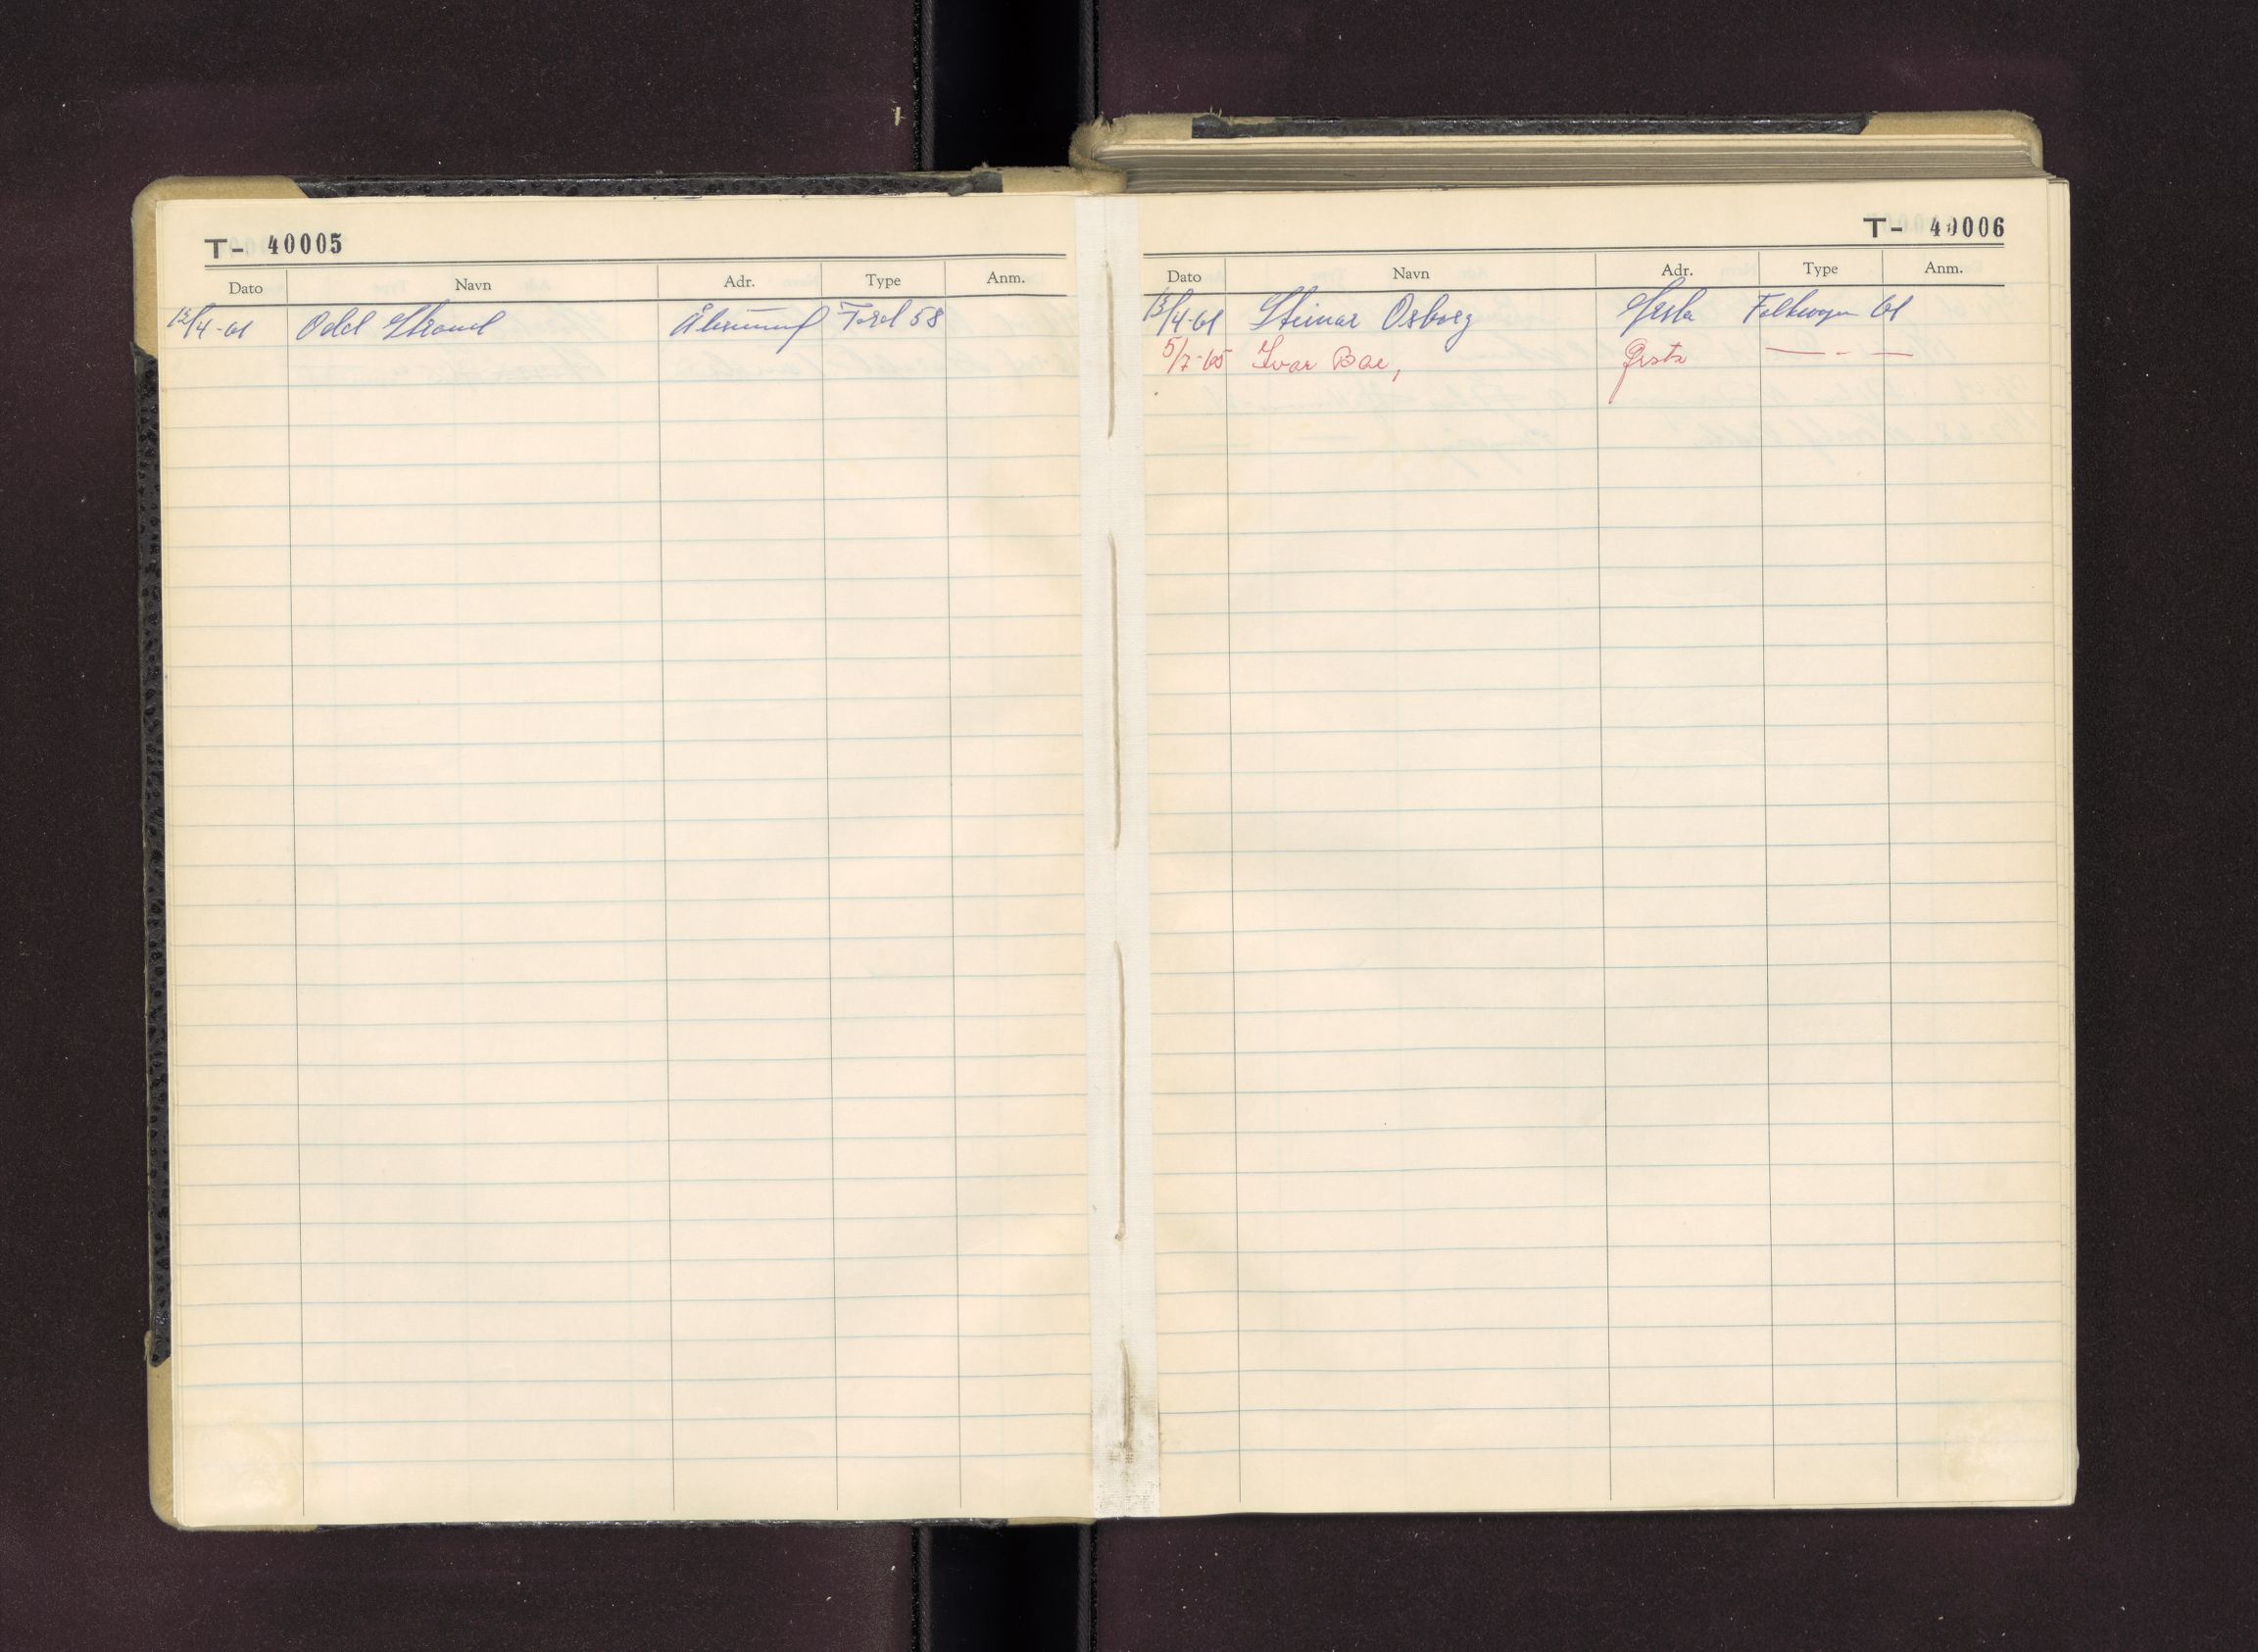 T- 40005
Dato Navn Adr. Type Anm.
12/4-61 Odd Strand Ford 58
T- 40006
Dato Navn Adr. Type Anm.
13/4-61 Steinar Osborg Ørsta Folkevogn 61
5/7-65 Ivar Bae, Ørsta — - —